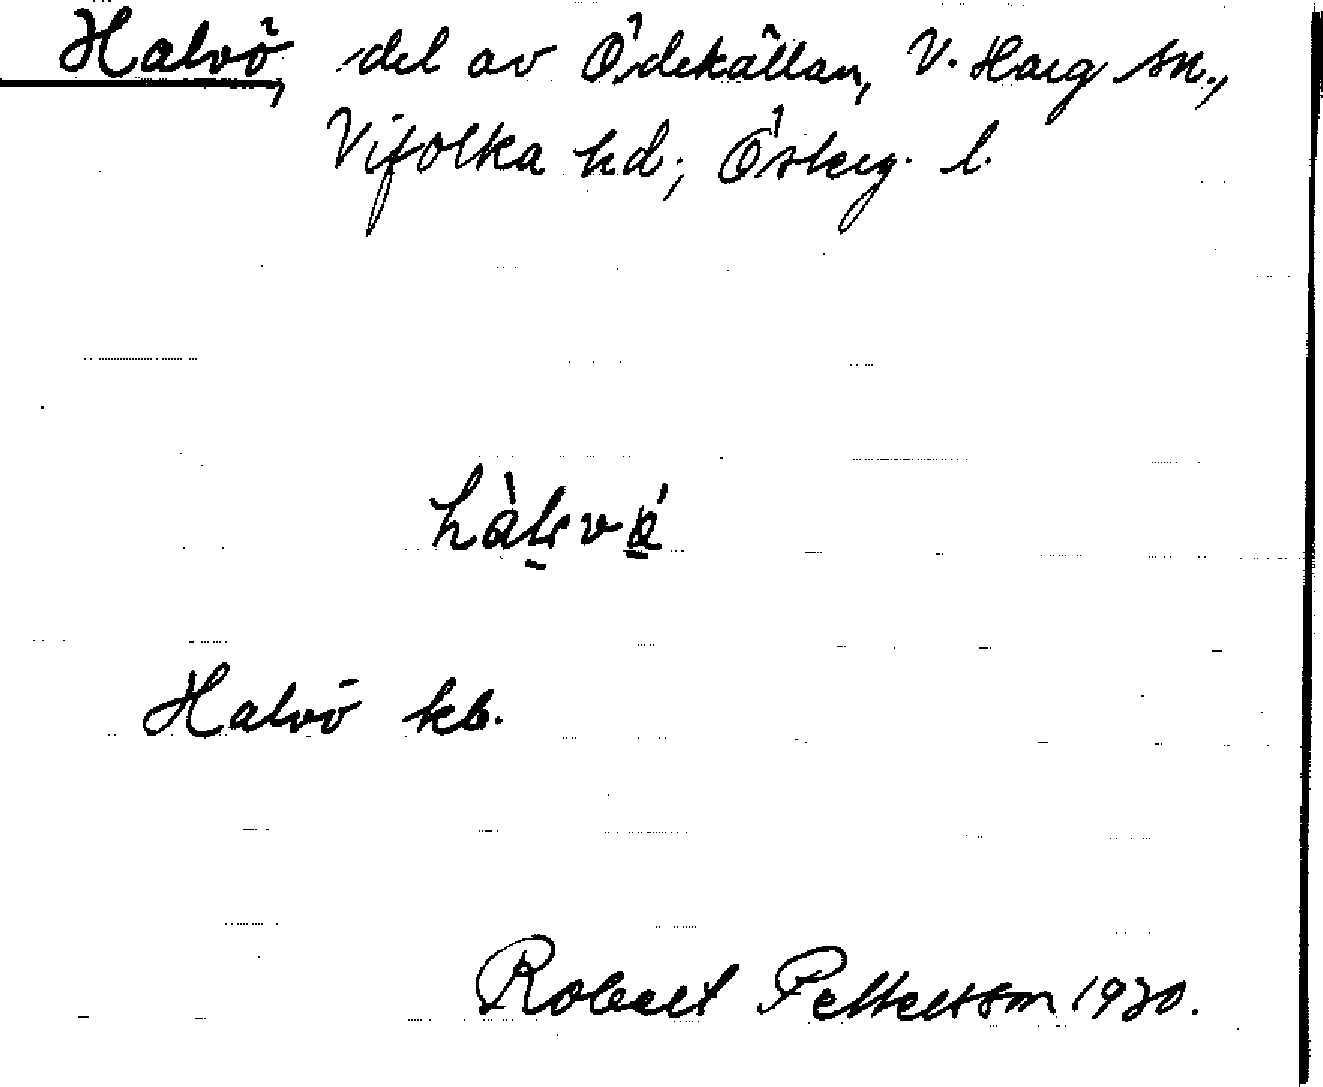 Halvö, del av Ödekällan, V. Harg sn.,
Vifolka hd; Österg. l.
Halvö kb.
Robert Pettersson 1930.